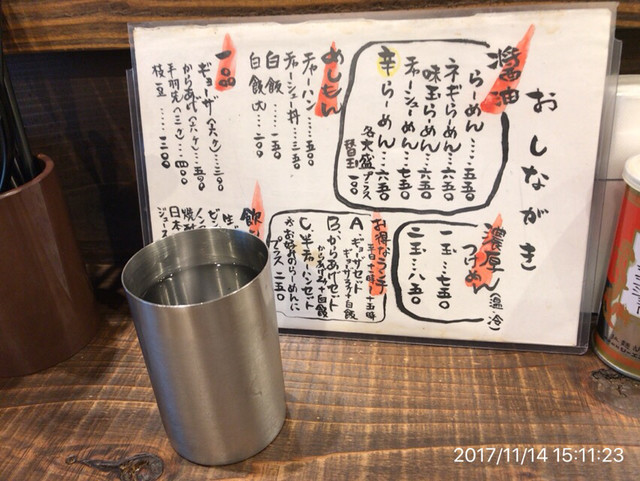 おしながき
醤油
らーめん…五五〇
ネギらーめん…六五〇
味玉らーめん…六五〇
チャーシューめん…七五〇
辛らーめん…六五〇
各大盛プラス
替玉一〇〇
濃厚つけめん(温・冷)
一玉…七五〇
二玉…八五〇
めしもん
チャーハン…五〇〇
チャーシュー丼…三五〇
白飯…一五〇
白飯大…二〇〇
一品
ギョーザ(六ケ)…三〇〇
からあげ(六ケ)…五〇〇
手羽先(三ケ)…四〇〇
枝豆…三〇〇
お得なランチ
平日十一時〜十五時
A、ギョーザセット
ギョーザ3ケ+白飯
B、からあげセット
からあげ3ケ+白飯
C、半チャーハンセット
※お好みのらーめんに
プラス一五〇
飲
生ビ
ビン
ノン
焼酎
日本
ジュース
2017/11/14 15:11:23